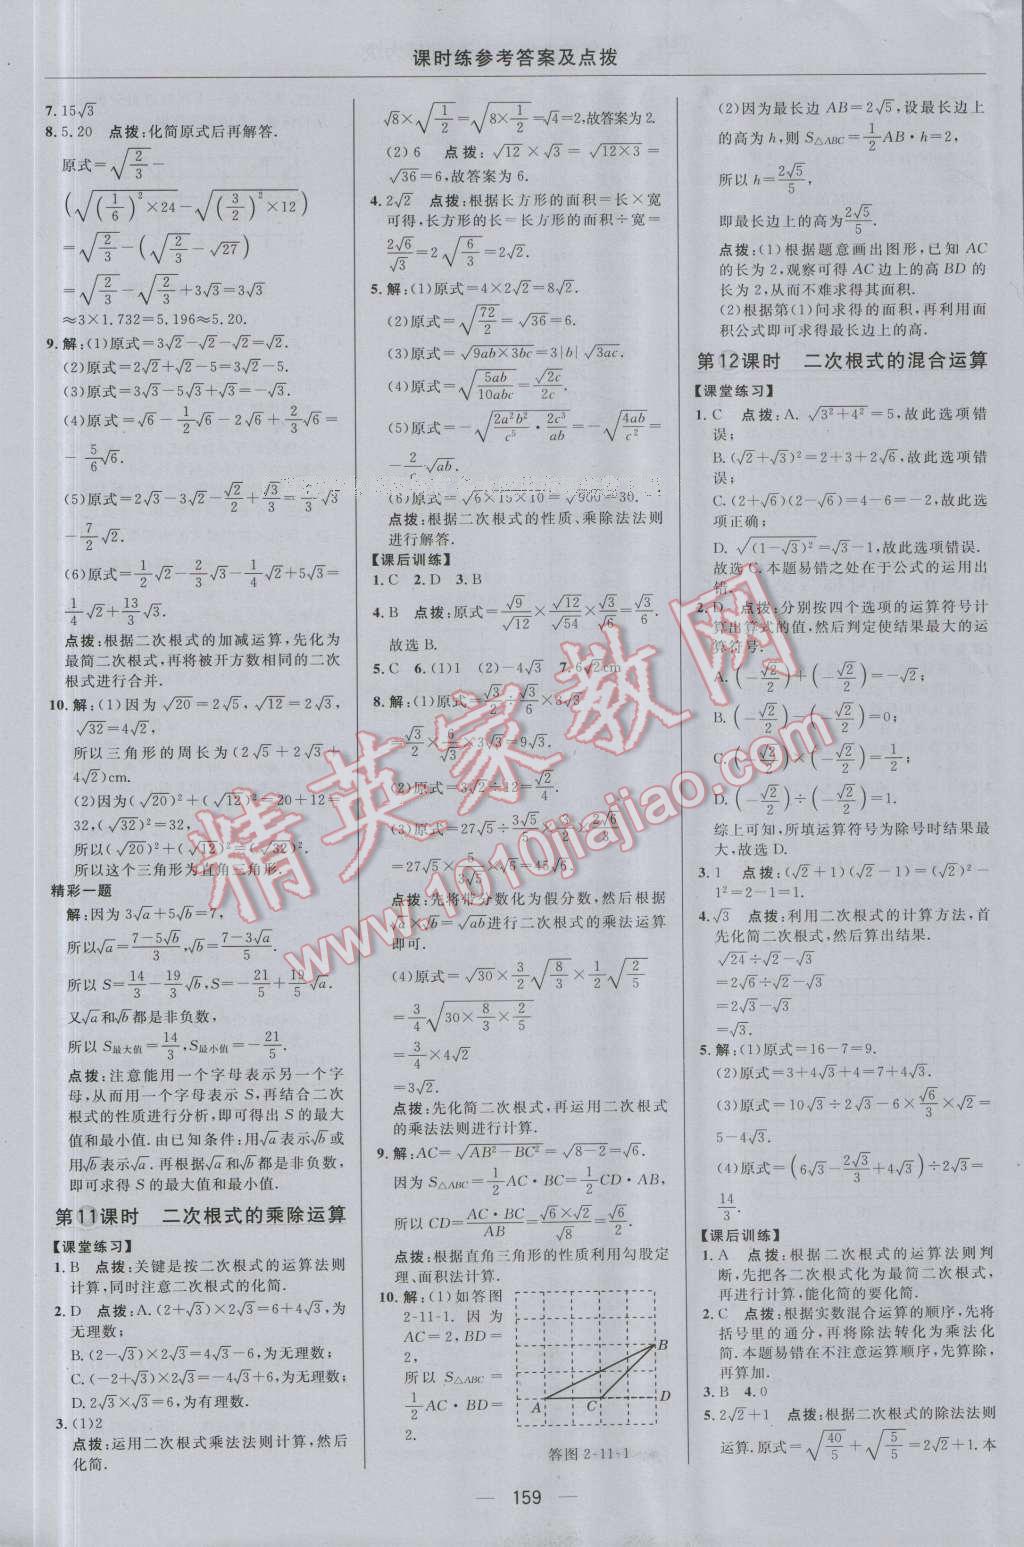 课时练参考答案及点拨
7. 15√3
8. 5.20 点拨：化简原式后再解答.
原式=√(2/3)-
(√((1/6)²×24)-√((3/2)²×12))
=√(2/3)-(√(2/3)-√27)
=√(2/3)-√(2/3)+3√3=3√3
≈3×1.732=5.196≈5.20.
9. 解：(1)原式=3√2-√2-√2=√2.
(2)原式=2√2+√2-5=3√2-5.
(3)原式=3√3-5√3+√3=-√3.
(4)原式=√6-1/2√6-2√6+2/3√6=
-5/6√6.
(5)原式=2√3-3√2-√2/2+√3/3=7/3√3
-7/2√2.
(6)原式=1/2√2-2/3√3-1/4√2+5√3=
1/4√2+13/3√3.
点拨：根据二次根式的加减运算，先化为
最简二次根式，再将被开方数相同的二次
根式进行合并.
10. 解：(1)因为√20=2√5，√12=2√3，
√32=4√2，
所以三角形的周长为(2√5+2√3+
4√2)cm.
(2)因为(√20)²+(√12)²=20+12=
32，(√32)²=32，
所以(√20)²+(√12)²=(√32)².
所以这个三角形为直角三角形.
精彩一题
解：因为3√a+5√b=7，
所以√a=(7-5√b)/3，√b=(7-3√a)/5.
所以S=14/3-19/3√b，S=-21/5+19/5√a.
又√a和√b都是非负数，
所以S最大值=14/3，S最小值=-21/5.
点拨：注意能用一个字母表示另一个字
母，从而用一个字母表示S，再结合二次
根式的性质进行分析，即可得出S的最大
值和最小值.由已知条件：用√a表示√b或
用√b表示√a.再根据√a和√b都是非负数，
即可求得S的最大值和最小值.
第11课时 二次根式的乘除运算
【课堂练习】
1. B 点拨：关键是按二次根式的运算法则
计算，同时注意二次根式的化简.
2. D 点拨：A.(2+√3)×2√3=6+4√3，为
无理数；
B.(2-√3)×2√3=4√3-6，为无理数；
C.(-2+√3)×2√3=6-4√3，为无理数；
D.2√3×√3=6，为有理数.
3. (1)2
点拨：运用二次根式乘法法则计算，然后
化简.
√8×√(1/2)=√(8×1/2)=√4=2，故答案为2.
(2)6 点拨：√12×√3=√(12×3)=
√36=6，故答案为6.
4. 2√2 点拨：根据长方形的面积=长×宽
可得，长方形的长=长方形的面积÷宽=
2√6/√3=2√(6/3)=2√2.
5. 解：(1)原式=4×2√2=8√2.
(2)原式=√(72/2)=√36=6.
(3)原式=√(9ab×3bc)=3|b|√3ac.
(4)原式=√(5ab/10abc)=√2c/2c.
(5)原式=-√(2a²b²/c⁵·2c³/ab)=-√(4ab/c²)=
-2/c√ab.
(6)原式=√(6×15×10)=√900=30.
点拨：根据二次根式的性质、乘除法法则
进行解答.
【课后训练】
1. C 2. D 3. B
4. B 点拨：原式=√9/√12×√12/√54=√3/√6×√3/6.
故选B.
5. C 6. (1)1 (2)-4√3 7. 6√2cm
8. 解：(1)原式=√3/2÷√3/6×3√3
=√3/2×6/√3×3√3=9√3.
(2)原式=3√2÷12=√2/4.
(3)原式=27√5÷3√5/5×5√3
=27√5×5/3√5×√6=45√6.
点拨：先将带分数化为假分数，然后根据
√a×√b=√ab进行二次根式的乘法运算
即可.
(4)原式=√30×3/2√(8/3)×1/2√(2/5)
=3/4√(30×8/3×2/5)
=3/4×4√2
=3√2.
点拨：先化简二次根式，再运用二次根式
的乘法法则进行计算.
9. 解：AC=√(AB²-BC²)=√(8-2)=√6.
因为S△ABC=1/2AC·BC=1/2CD·AB，
所以CD=AC·BC/AB=√6×√2/√8=√6/2.
点拨：根据直角三角形的性质利用勾股定
理、面积法计算.
10. 解：(1)如答图
2-11-1.因为
AC=2，BD=
2，
所以S△ABC=
1/2AC·BD=
2.
A C D B
答图2-11-1
(2)因为最长边AB=2√5，设最长边上
的高为h，则S△ABC=1/2AB·h=2，
所以h=2√5/5，
即最长边上的高为2√5/5.
点拨：(1)根据题意画出图形，已知AC
的长为2，观察可得AC边上的高BD的
长为2，从而不难求得其面积.
(2)根据第(1)问求得的面积，再利用面
积公式即可求得最长边上的高.
第12课时 二次根式的混合运算
【课堂练习】
1. C 点拨：A.√(3²+4²)=5，故此选项错
误；
B.(√2+√3)²=2+3+2√6，故此选项错
误；
C.(2+√6)(2-√6)=4-6=-2，故此选
项正确；
D.√((1-√3)²)=√3-1，故此选项错误.
故选C.本题易错之处在于公式的运用出
错.
2. D 点拨：分别按四个选项的运算符号计
算出算式的值，然后判定使结果最大的运
算符号.
A.(-√2/2)+(-√2/2)=-√2；
B.(-√2/2)-(-√2/2)=0；
C.(-√2/2)×(-√2/2)=1/2；
D.(-√2/2)÷(-√2/2)=1.
综上可知，所填运算符号为除号时结果最
大，故选D.
3. 1 点拨：(√2+1)(√2-1)=(√2)²-
1²=2-1=1.
4. √3 点拨：利用二次根式的计算方法，首
先化简二次根式，然后算出结果.
√24÷√2-√3
=2√6÷√2-√3
=2√3-√3
=√3.
5. 解：(1)原式=16-7=9.
(2)原式=3+4√3+4=7+4√3.
(3)原式=10√3÷2√3-6×√6/3×√2=
5-4√3.
(4)原式=(6√3-2√3/3+4√3)÷2√3=
14/3.
【课后训练】
1. A 点拨：根据二次根式的运算法则判
断，先把各二次根式化为最简二次根式，
再进行计算，能化简的要化简.
2. C 点拨：根据实数混合运算的顺序，先将
括号里的通分，再将除法转化为乘法化
简.本题易错在不注意运算顺序，先算除，
再算加.
3. B 4. 0
5. 2√2+1 点拨：根据二次根式的除法法则
运算.原式=√(40/5)+√(5/5)=2√2+1.本
— 159 —
精英家教网
www.1010jiajiao.com